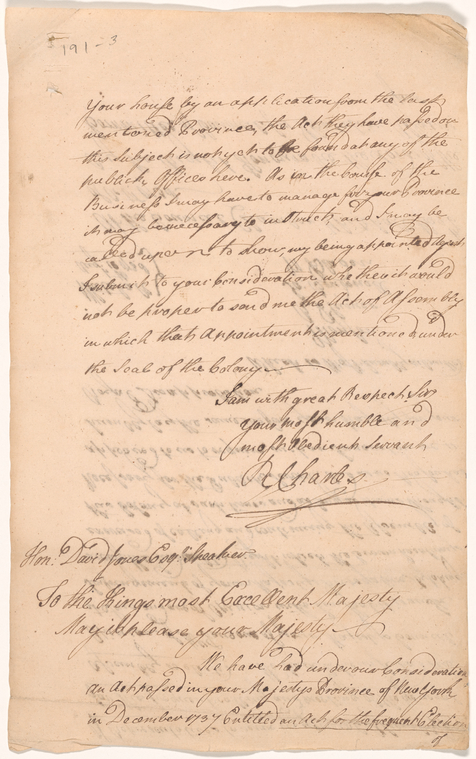 191-3
Your house by an application from the last
mentioned Province, the Act they have passed on
this Subject is not yet to be found at any of the
publick Offices here. As in the Course of the
Business I may have to manage for your Province
it may be necessary to instruct, and I may be
called upon to show my being appointed Agent
I submit to your Consideration whether it would
not be proper to send me the Act of Assembly
in which that Appointment is mentioned under
the Seal of the Colony.
I am with great Respect Sir
Your most humble and
most Obedient Servant
R Charles.
Hon.ble David Jones Esq.r Speaker
To the Kings most Excellent Majesty
May it please your Majesty
We have had under our Consideration
an Act passed in your Majestys Province of New York
in December 1737 Entitled an Act for the frequent Election
of